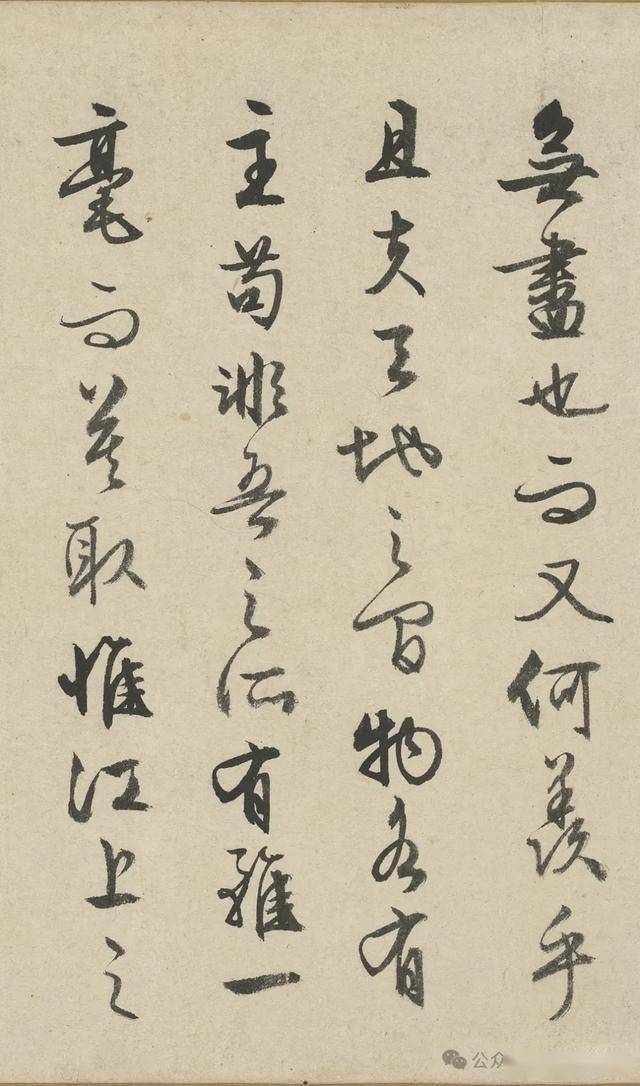 無盡也而又何羨乎
且夫天地之間物各有
主苟非吾之所有雖一
毫而莫取惟江上之
公众